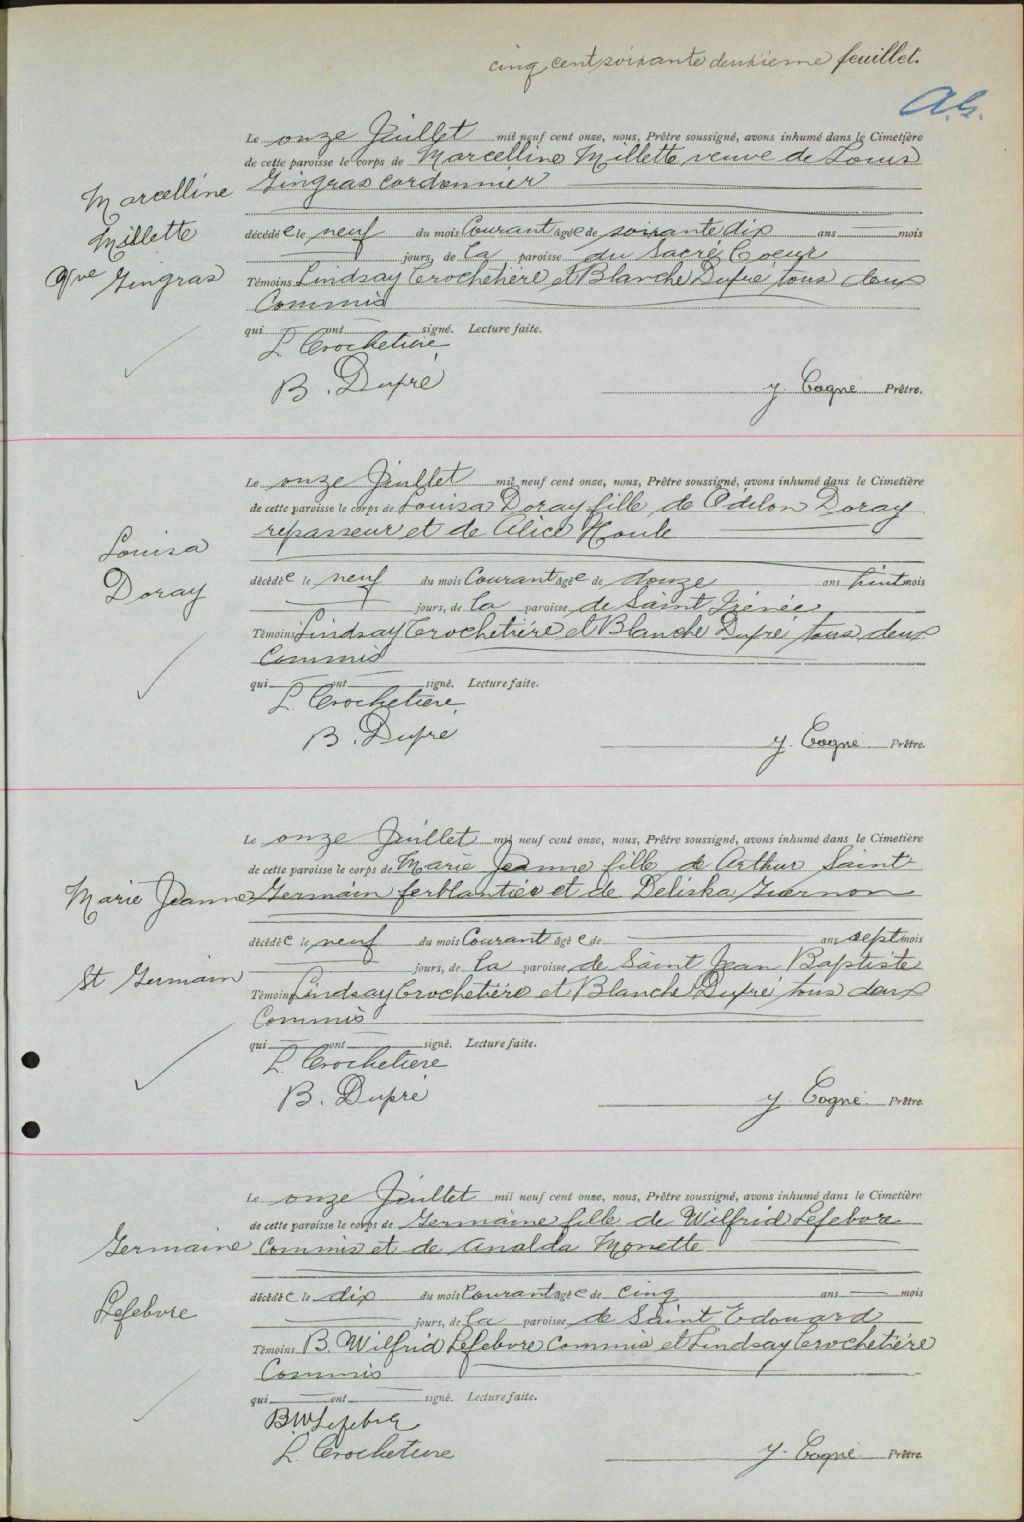 cinq cent soixante deuxième feuillet.
A.G.
Le onze Juillet mil neuf cent onze, nous, Prêtre soussigné, avons inhumé dans le Cimetière
de cette paroisse le corps de Marcelline Millette, veuve de Louis
Gingras cordonnier
Marcelline
Millette
Gingras
décédée le neuf du mois Courant âgée de soixante dix ans — mois
— jours, de la paroisse du Sacré Coeur
Témoins Lindsay Crochetière et Blanche Dupré tous deux
Commis
qui — ont — signé. Lecture faite.
L. Crochetiere
B. Dupré
J. Cogné Prêtre.
Le onze Juillet mil neuf cent onze, nous, Prêtre soussigné, avons inhumé dans le Cimetière
de cette paroisse le corps de Louisa Doray fille de Odilon Doray
repasseur et de Alice Houle
Louisa
Doray
décédée le neuf du mois Courant âgée de douze ans huit mois
— jours, de la paroisse de Saint Irénée
Témoins Lindsay Crochetière et Blanche Dupré tous deux
Commis
qui — ont — signé. Lecture faite.
L. Crochetiere
B. Dupré
J. Cogné Prêtre.
Le onze Juillet mil neuf cent onze, nous, Prêtre soussigné, avons inhumé dans le Cimetière
de cette paroisse le corps de Marie Jeanne fille de Arthur Saint
Marie Jeanne
Germain ferblantier et de Deliska Guernon
décédée le neuf du mois Courant âgée de — ans sept mois
St Germain
— jours, de la paroisse de Saint Jean Baptiste
Témoins Lindsay Crochetière et Blanche Dupré tous deux
Commis
qui — ont — signé. Lecture faite.
L. Crochetiere
B. Dupré
J. Cogné Prêtre.
Le onze Juillet mil neuf cent onze, nous, Prêtre soussigné, avons inhumé dans le Cimetière
de cette paroisse le corps de Germaine fille de Wilfrid Lefebvre
Germaine
Commis et de Analda Monette
décédée le dix du mois Courant âgée de cinq ans — mois
Lefebvre
— jours, de la paroisse de Saint Edouard
Témoins B. Wilfrid Lefebvre Commis et Lindsay Crochetière
Commis
qui — ont — signé. Lecture faite.
B.W. Lefebvre
L. Crochetiere
J. Cogné Prêtre.